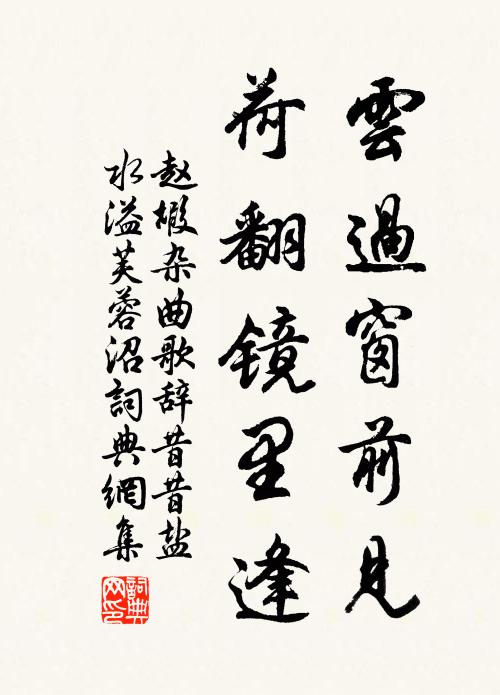 雲過窗前見
荷翻镜里逢
赵嘏杂曲歌辞昔昔盐
水溢芙蓉沼詞典網集
詞典網印